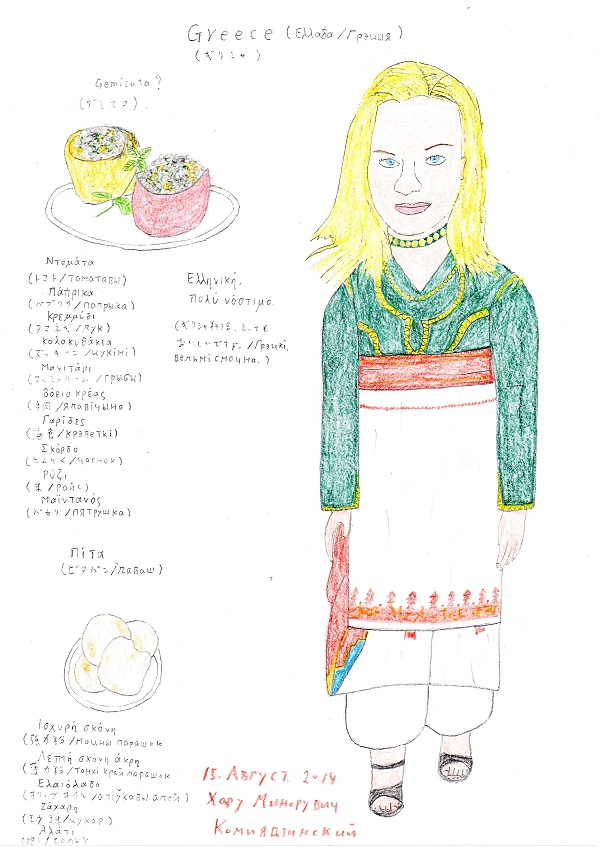 Greece (Ελλαδα/Грэцыя)
(ギリシャ)
Gemisuta?
(ゲミスタ)
Ντομάτα
(トマト/таматавы)
Πάπρικα
(パプリカ/папрыка)
Κρεμμύδι
(タマネギ/лук)
Κολοκυθάκια
(ズッキーニ/цукіні)
Μανιτάρι
(マッシュルーム/грыбы)
Βόειο κρέας
(牛肉/ялавічына)
Γαρίδες
(海老/крэветкі)
Σκόρδο
(ニンニク/часнок)
Ρύζι
(米/райс)
Μαϊντανός
(パセリ/пятрушка)
Ελληνική,
πολύ νόστιμο.
(ギリシャ料理、とっても
おいしいです。/Грэцкі,
вельмі смачна.)
Πίτα
(ピタパン/лаваш)
Ισχυρή σκόνη
(強力粉/моцны парашок
Λεπτή σκόνη άκρη
(薄力粉/тонкі край парашок
Ελαιόλαδο
(オリーブオイル/аліўкавы алей)
Ζάχαρη
(砂糖/цукар)
Αλάτι
15. Август. 2014